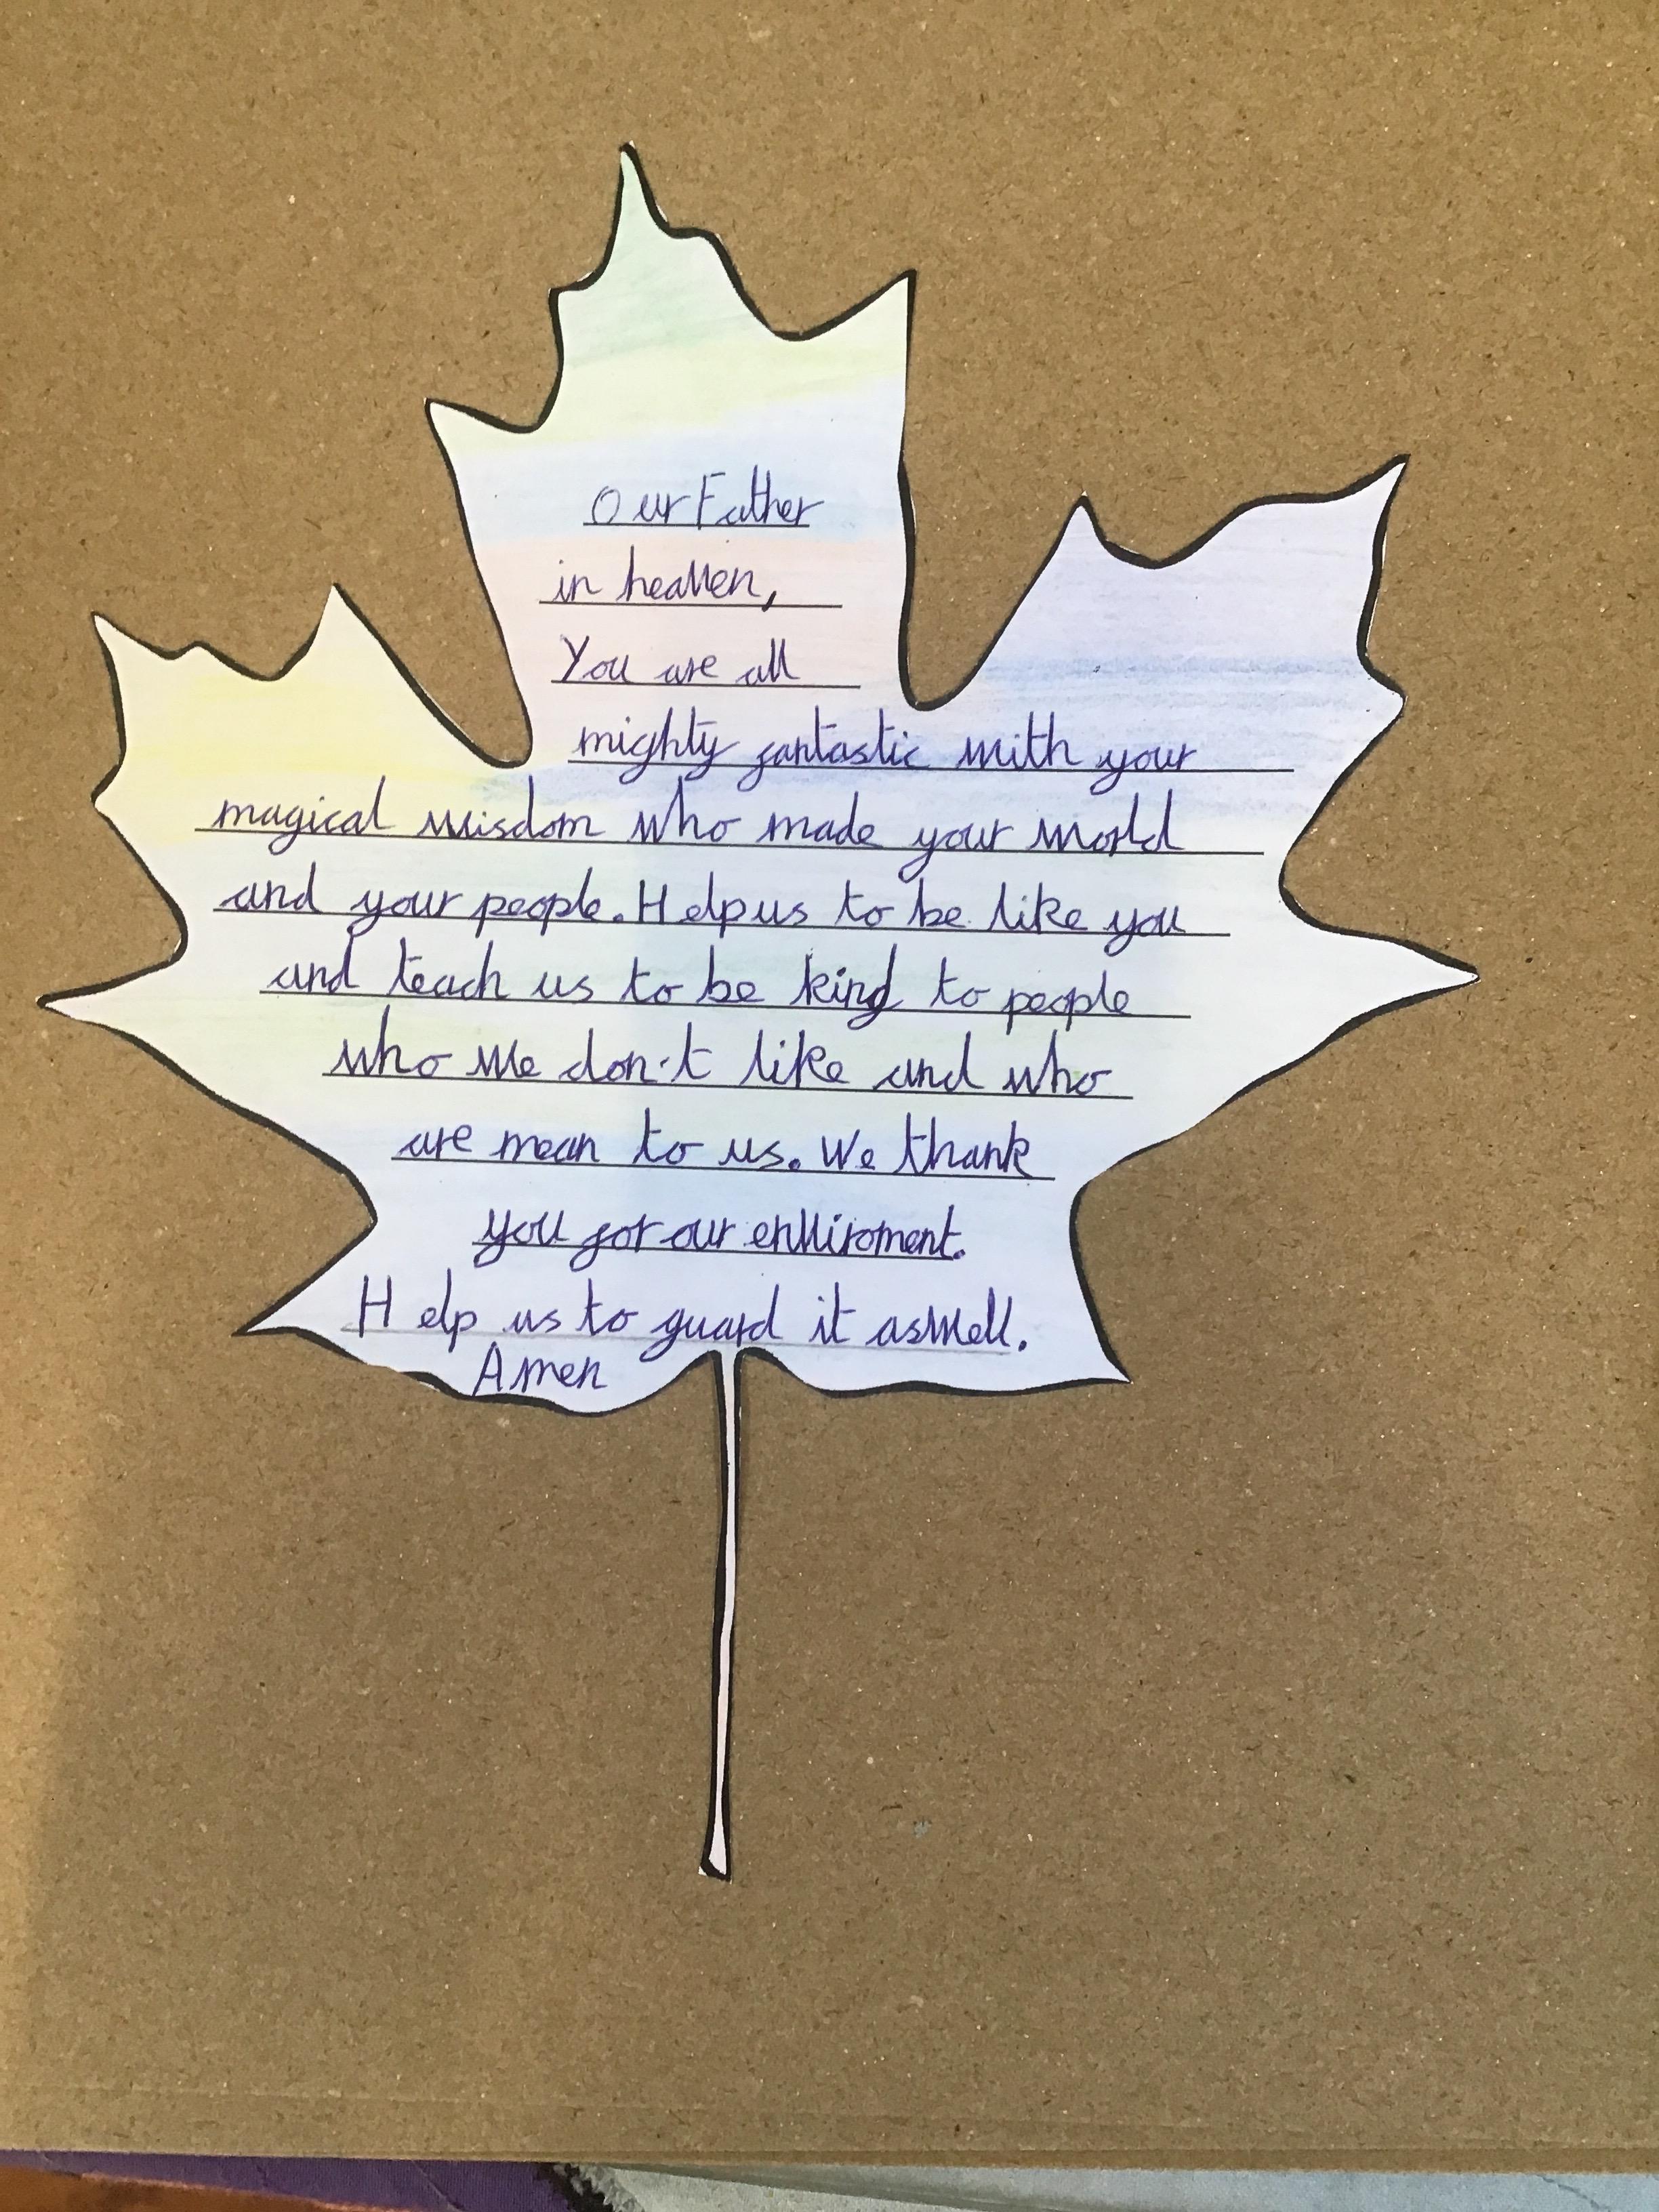 Our Father
in heaven,
You are all
mighty fantastic with your
magical wisdom who made your world
and your people. Help us to be like you
and teach us to be kind to people
who we don't like and who
are mean to us. We thank
you for our enviroment.
Help us to guard it aswell.
Amen